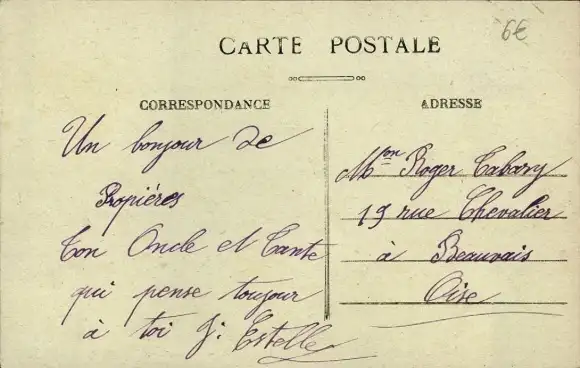 6€
CARTE POSTALE
CORRESPONDANCE
Un bonjour de
Propières
Ton Oncle et Tante
qui pense toujour
à toi J. Estelle
ADRESSE
Mon Roger Cabary
19 rue Chevalier
à Beauvais
Oise